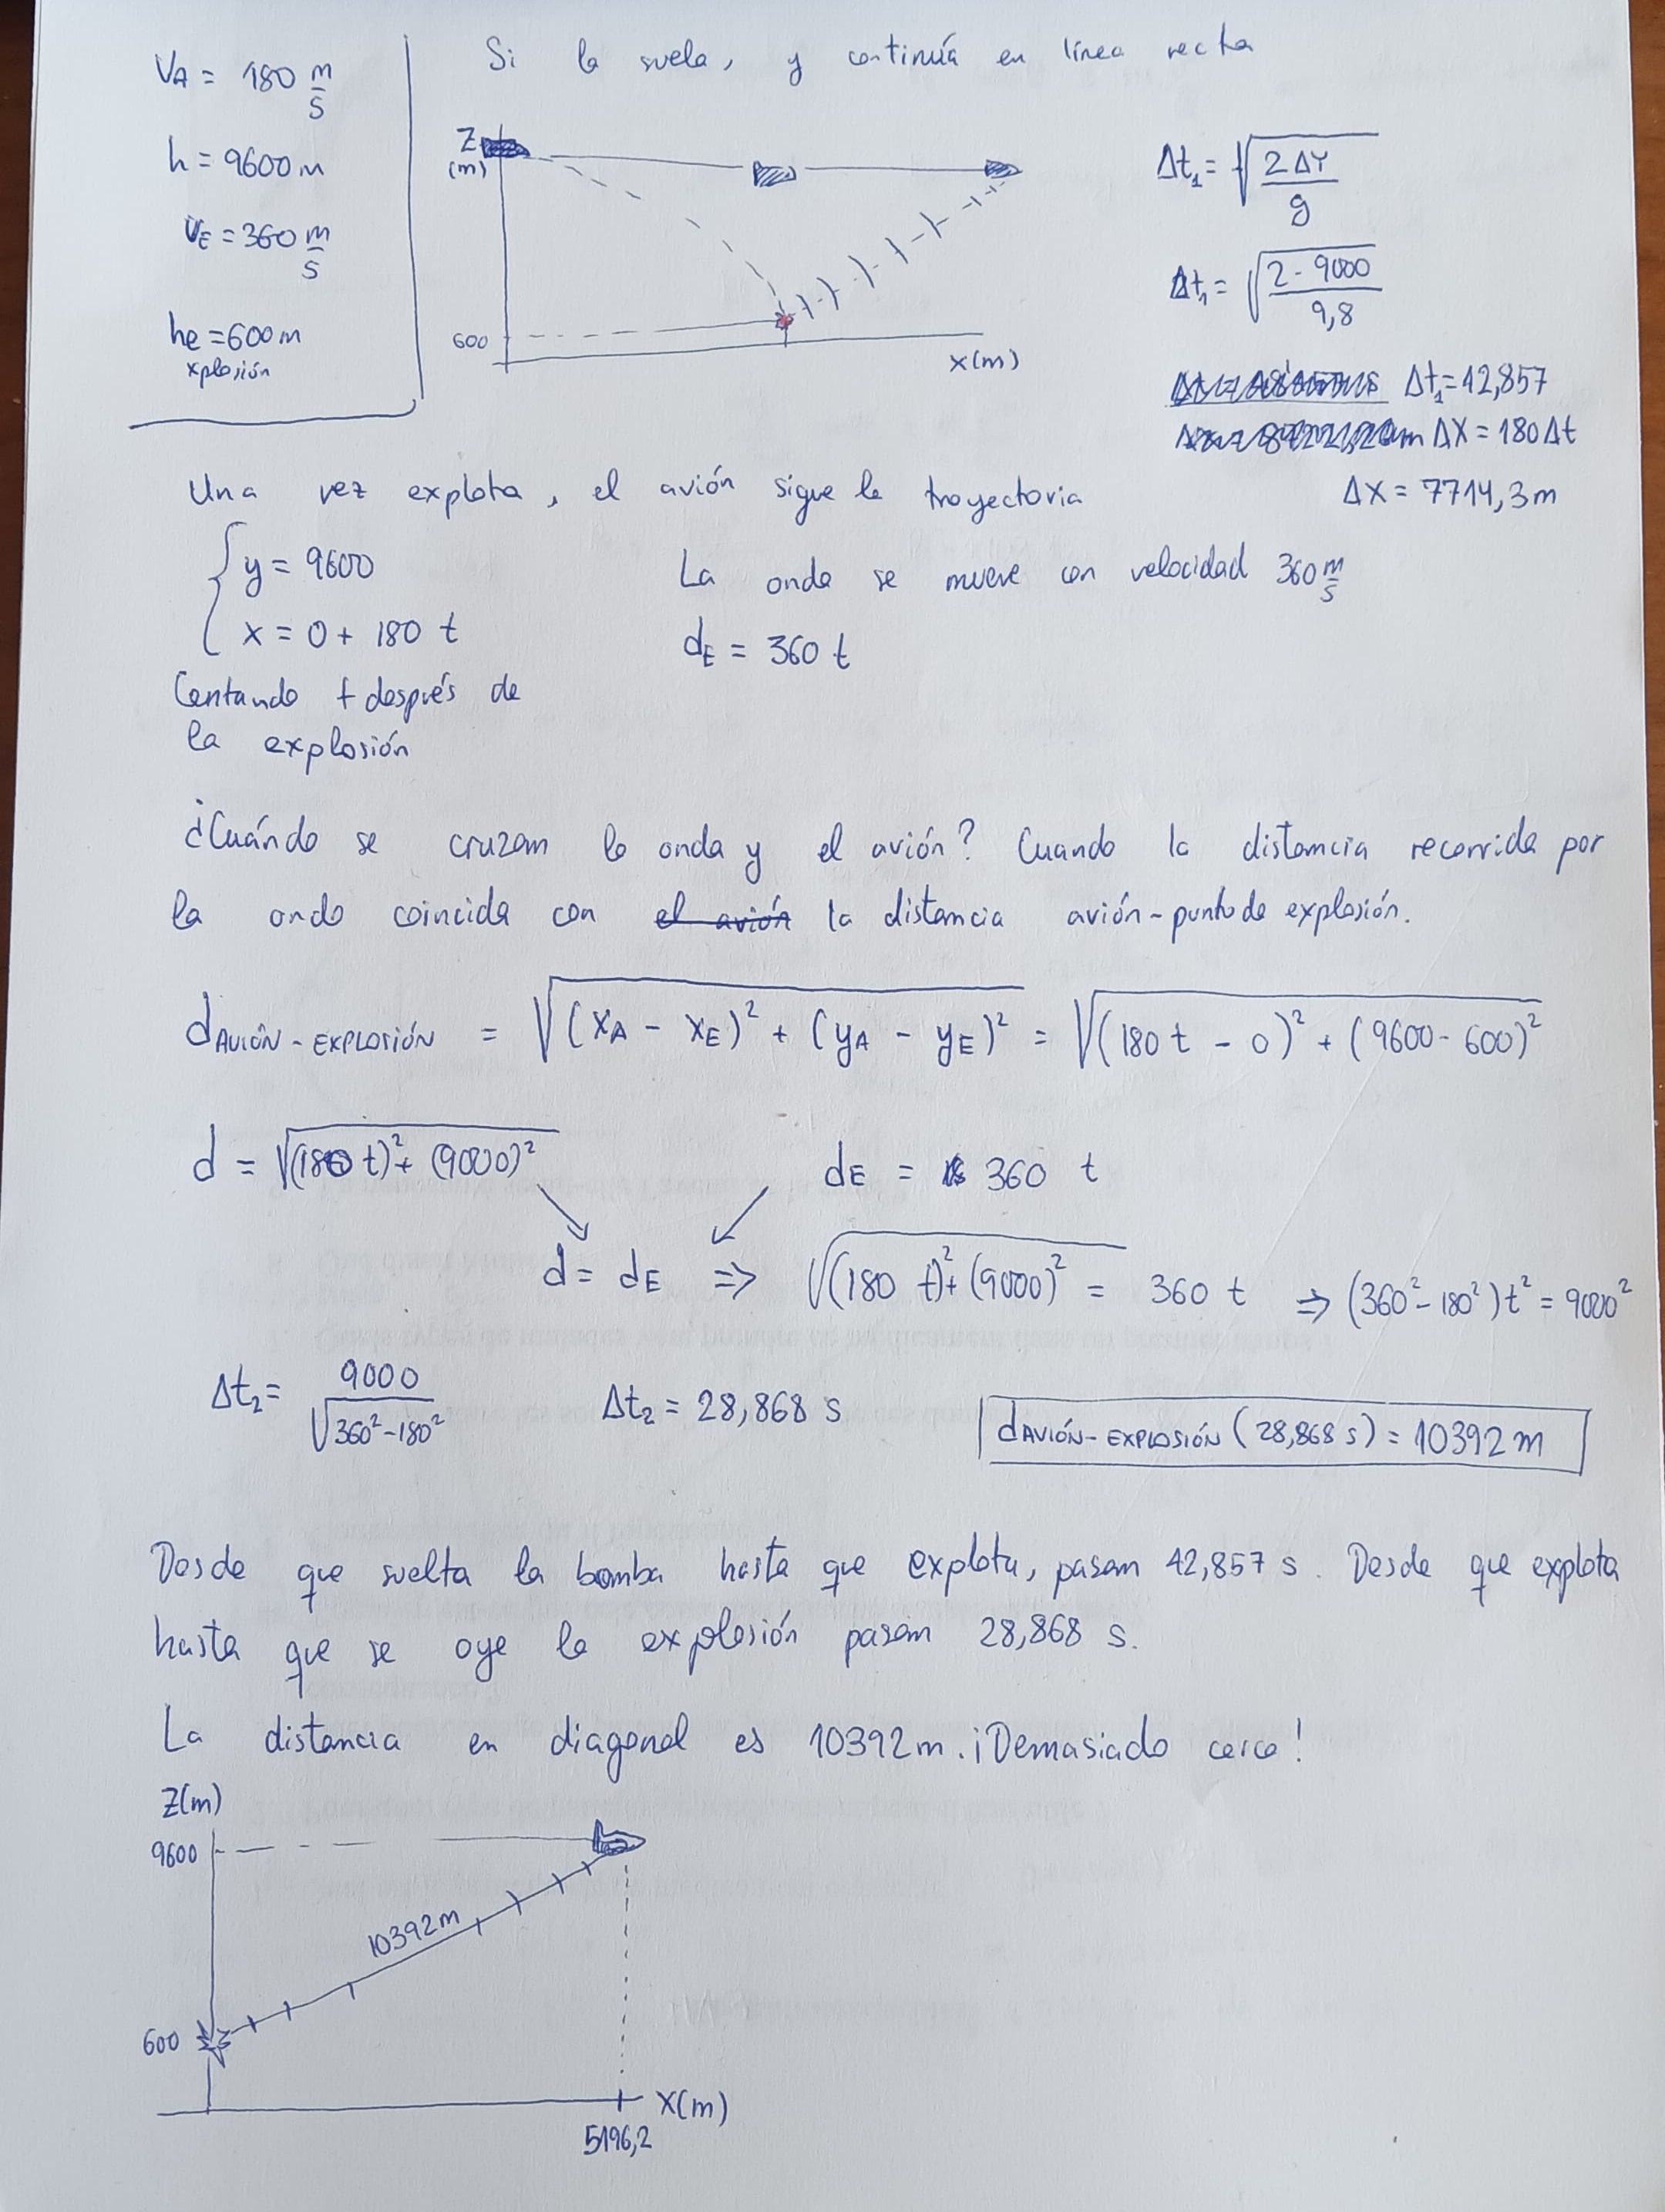 V_A = 180 m/s
h = 9600 m
V_E = 360 m/s
he = 600 m
xplosión
Si la suela, y continúa en línea recta
Z
(m)
600
X(m)
Δt₁ = √(2ΔY/g)
Δt₁ = √(2·9000/9,8)
Δt₁ = 42,857
ΔX = 180Δt
ΔX = 7714,3 m
Una vez explota, el avión sigue la trayectoria
{ y = 9600
x = 0 + 180 t
La onda se mueve con velocidad 360 m/s
d_E = 360 t
Contando t después de
la explosión
¿Cuándo se cruzan la onda y el avión? Cuando la distancia recorrida por
la onda coincida con el avión la distancia avión-punto de explosión.
d_AVIÓN-EXPLOSIÓN = √((x_A - x_E)² + (y_A - y_E)²) = √((180 t - 0)² + (9600 - 600)²)
d = √((180 t)² + (9000)²) d_E = 360 t
d = d_E ⇒ √((180 t)² + (9000)²) = 360 t ⇒ (360² - 180²) t² = 9000²
Δt₂ = 9000/√(360² - 180²) Δt₂ = 28,868 s d_AVIÓN-EXPLOSIÓN (28,868 s) = 10392 m
Desde que suelta la bomba hasta que explota, pasan 42,857 s. Desde que explota
hasta que se oye la explosión pasan 28,868 s.
La distancia en diagonal es 10392 m. ¡Demasiado cerca!
Z(m)
9600
10392 m
600
X(m)
5196,2